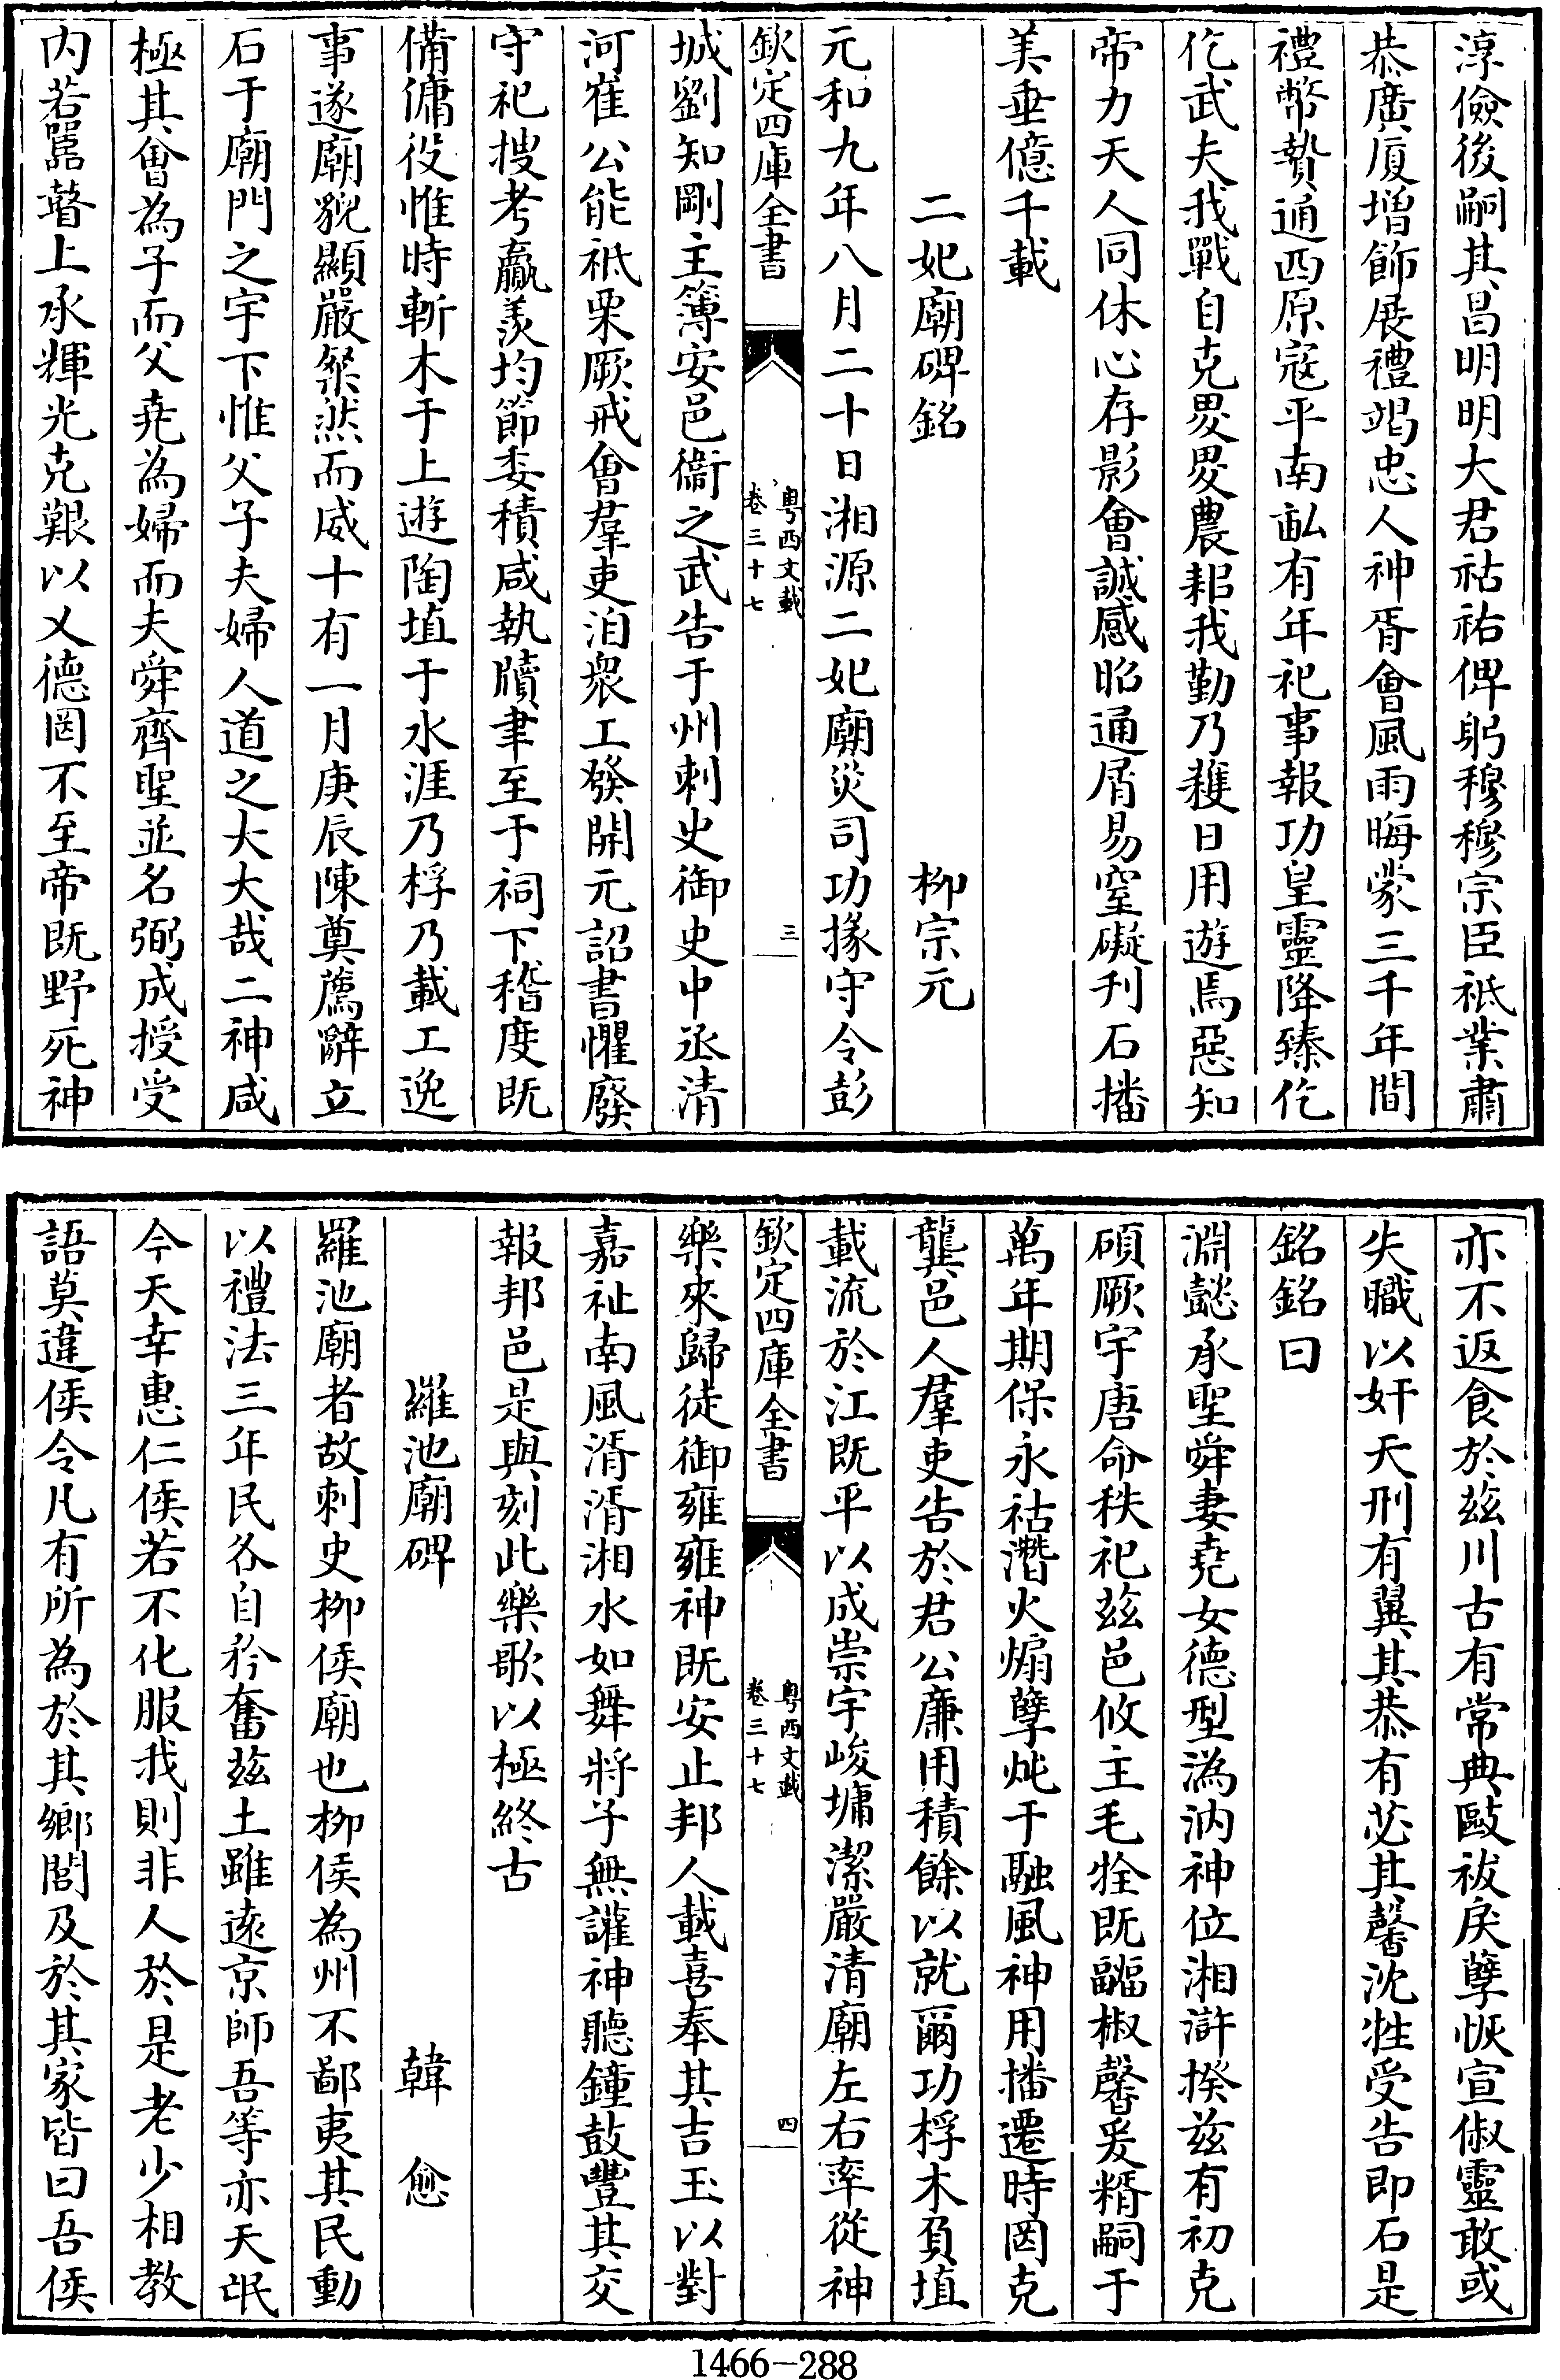 淳儉後嗣其昌明明大君祜祐俾躬穆穆宗臣祗業肅
恭廣厦増飾展禮竭忠人神胥會風雨晦蒙三千年間
禮幣贄通西原寇平南畆有年祀事報功皇靈降臻仡
仡武夫我戰自克畟畟農耜我勤乃穫日用遊焉惡知
帝力天人同休心存影會誠感昭通屑易窒礙刋石播
美垂億千載
二妃廟碑銘 柳宗元
元和九年八月二十日湘源二妃廟災司功掾守令彭
欽定四庫全書 粤西文載 卷三十七 三
城劉知剛主簿安邑衞之武告于州刺史御史中丞清
河崔公能祗栗厥戒會羣吏洎衆工發開元詔書懼廢
守祀搜考贏羨均節委積咸執牘聿至于祠下稽度既
備傭役惟時斬木于上遊陶埴于水涯乃桴乃載工逸
事遂廟貌顯嚴粲然而威十有一月庚辰陳奠薦辭立
石于廟門之宇下惟父子夫婦人道之大大哉二神咸
極其會為子而父堯為婦而夫舜齊聖並名弼成授受
内若嚚瞽上承輝光克艱以乂德罔不至帝既野死神
亦不返食於茲川古有常典敺祓戾孽恢宣俶靈敢或
失職以奸天刑有翼其恭有苾其馨沈牲受告即石是
銘銘曰
淵懿承聖舜妻堯女德型溈汭神位湘滸揆兹有初克
碩厥宇唐命秩祀茲邑攸主毛牷既疈椒馨爰糈嗣于
萬年期保永祜潛火煽孽炖于融風神用播遷時罔克
龔邑人羣吏告於君公廉用積餘以就爾功桴木負埴
載流於江既平以成崇宇峻墉潔嚴清廟左右率從神
欽定四庫全書 粤西文載 卷三十七 四
樂來歸徒御雍雍神既安止邦人載喜奉其吉玉以對
嘉祉南風湑湑湘水如舞將子無讙神聽鐘鼓豐其交
報邦邑是與刻此樂歌以極終古
羅池廟碑 韓愈
羅池廟者故刺史柳侯廟也柳侯為州不鄙夷其民動
以禮法三年民各自矜奮茲土雖逺京師吾等亦天氓
今天幸惠仁侯若不化服我則非人於是老少相教
語莫違侯令凡有所為於其鄉閭及於其家皆曰吾侯
1466-288